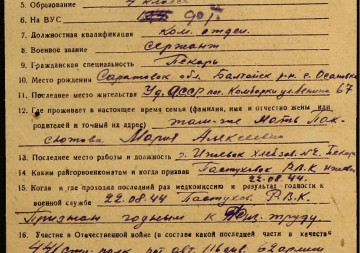 5. Образование 4 класса
6. На ВУС
7. Должностная квалификация ком. отдел.
8. Военное звание сержант
9. Гражданская специальность Пекарь
10. Место рождения Саратовск. обл. Балтайск. р-н с. Осановка
11. Последнее место жительства Уд. АССР пос. Камбарка ул. Ленина 67
12. Где проживает в настоящее время семья (фамилия, имя и отчество жены или
родителей и точный их адрес) там-же Мать
Мария Алексеевна
13. Последнее место работы и должность г. Ижевск Хлебзав. №2, Пекарь
14. Каким райгорвоенкоматом и когда призван Пастухов Р.В.К.
22.08.44.
15. Когда и где проходил последний раз медкомиссию и результат годности к
военной службе 22.08.44 Пастухов. Р.В.К.
Признан годным к физ. труду
16. Участие в Отечественной войне (в составе какой последней части и в качестве
441 стр. полк 116 див. 62 армии